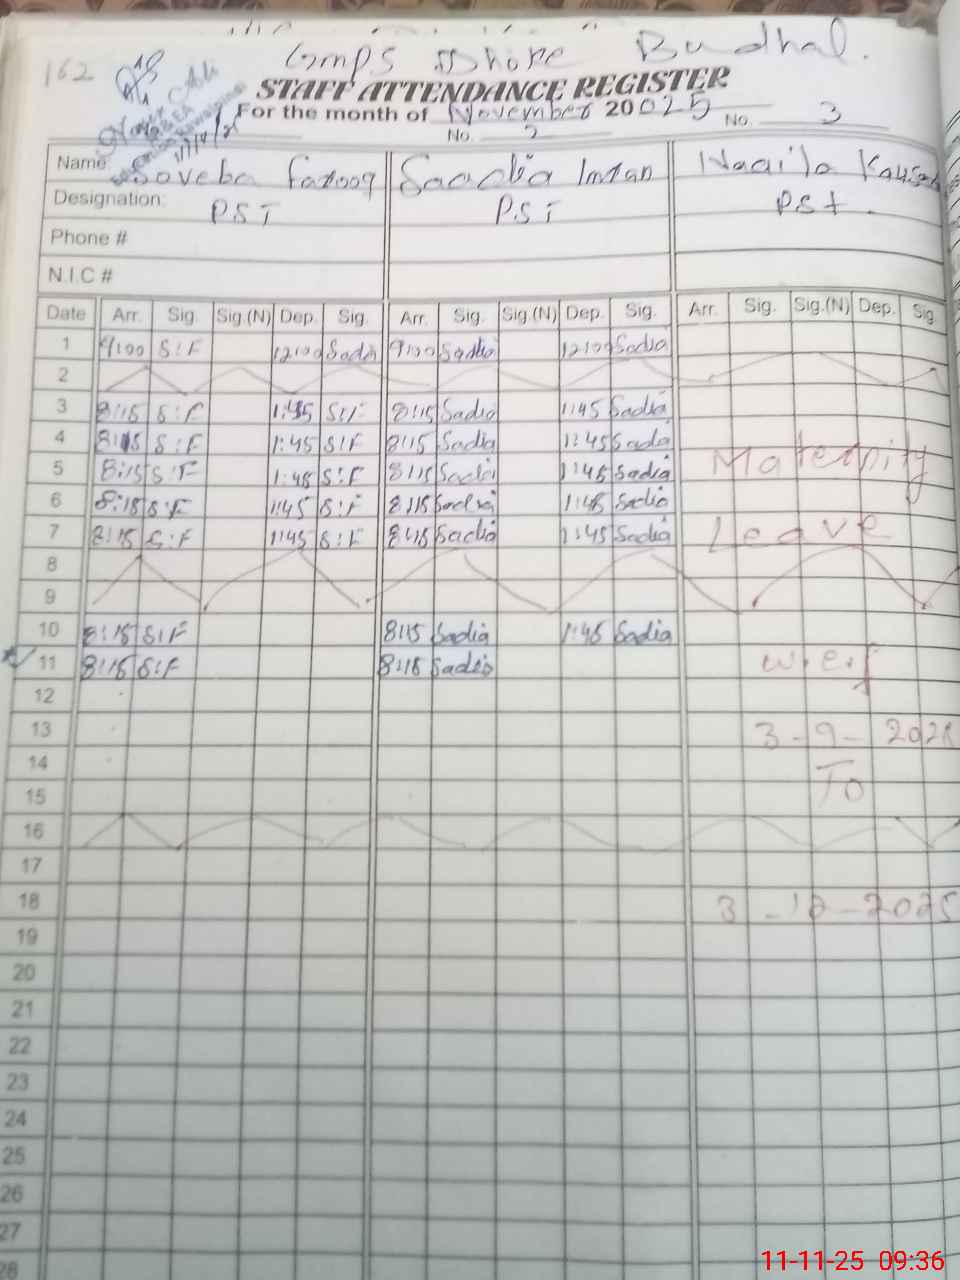 162
Gmps Dhoke Budhal.
STAFF ATTENDANCE REGISTER
For the month of November 20 025 No. 3
No. 2
Name: Soveba Farooq Saadia Imran Naaila Kausar
Designation: PST PST PST.
Phone #
N.I.C #
Date Arr. Sig. Sig.(N) Dep. Sig. Arr. Sig. Sig.(N) Dep. Sig. Arr. Sig. Sig.(N) Dep. Sig.
1 9:00 S:F 12:00 Sadia 9:00 Sadia 12:00 Sadia
2
3 8:15 S:F 1:45 S:F 8:15 Sadia 1:45 Sadia
4 8:15 S:F 1:45 S:F 8:15 Sadia 1:45 Sadia
5 8:15 S:F 1:45 S:F 8:15 Sadia 1:45 Sadia Maternity
6 8:15 S:F 1:45 S:F 8:15 Sadia 1:45 Sadia
7 8:15 S:F 1:45 S:F 8:15 Sadia 1:45 Sadia Leave
8
9
10 8:15 S:F 8:15 Sadia 1:45 Sadia
11 8:15 S:F 8:15 Sadia w.e.f
12
13 3-9-2025
14 To
15
16
17
18 3-12-2025
19
20
21
22
23
24
25
26
27
28
11-11-25 09:36